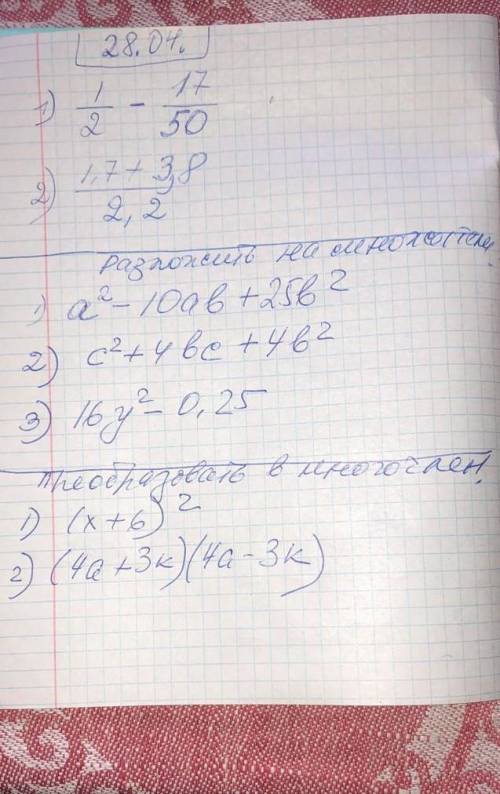 28.04.
1) 1/2 - 17/50
2) (1,7 + 3,8)/2,2
Разложить на множители.
1) a² - 10ab + 25b²
2) c² + 4bc + 4b²
3) 16y² - 0,25
Преобразовать в многочлен.
1) (x + 6)²
2) (4a + 3k)(4a - 3k)